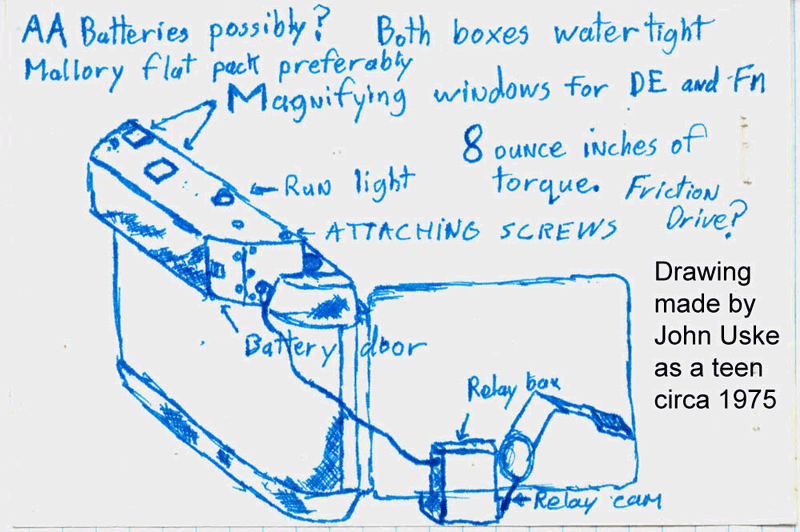 AA Batteries possibly? Both boxes watertight
Mallory flat pack preferably
Magnifying windows for DE and Fn
8 ounce inches of
torque. Friction
Drive?
Run light
ATTACHING SCREWS
Drawing
made by
John Uske
as a teen
circa 1975
Battery door
Relay box
Relay cam